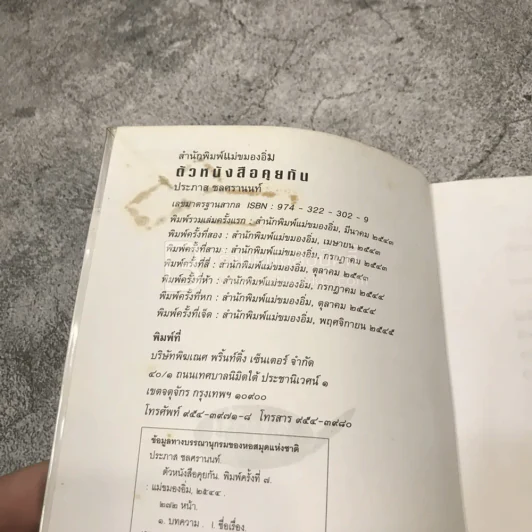 สำนักพิมพ์แม่ขมองอิ่ม
ตัวหนังสือคุยกัน
ประภาส ชลศรานนท์
เลขมาตรฐานสากล ISBN : 974 - 322 - 302 - 9
พิมพ์รวมเล่มครั้งแรก : สำนักพิมพ์แม่ขมองอิ่ม, มีนาคม ๒๕๔๓
พิมพ์ครั้งที่สอง : สำนักพิมพ์แม่ขมองอิ่ม, เมษายน ๒๕๔๓
พิมพ์ครั้งที่สาม : สำนักพิมพ์แม่ขมองอิ่ม, กรกฎาคม ๒๕๔๓
พิมพ์ครั้งที่สี่ : สำนักพิมพ์แม่ขมองอิ่ม, ตุลาคม
พิมพ์ครั้งที่ห้า : สำนักพิมพ์แม่ขมองอิ่ม, กรกฎาคม ๒๕๔๔
พิมพ์ครั้งที่หก : สำนักพิมพ์แม่ขมองอิ่ม, ตุลาคม ๒๕๔๔
พิมพ์ครั้งที่เจ็ด : สำนักพิมพ์แม่ขมองอิ่ม, พฤศจิกายน ๒๕๔๕
พิมพ์ที่
บริษัทพิฆเณศ พริ้นท์ติ้ง เซ็นเตอร์ จำกัด
๔๐/๑ ถนนเทศบาลนิมิตใต้ ประชานิเวศน์ ๑
เขตจตุจักร กรุงเทพฯ ๑๐๙๐๐
โทรศัพท์ ๙๕๔-๓๙๗๑-๘ โทรสาร ๙๕๔-๓๙๘๐
ข้อมูลทางบรรณานุกรมของหอสมุดแห่งชาติ
ประภาส ชลศรานนท์.
ตัวหนังสือคุยกัน. พิมพ์ครั้งที่ ๗.
: แม่ขมองอิ่ม, ๒๕๔๔.
๒๘๒ หน้า.
๑. บทความ. I. ชื่อเรื่อง.